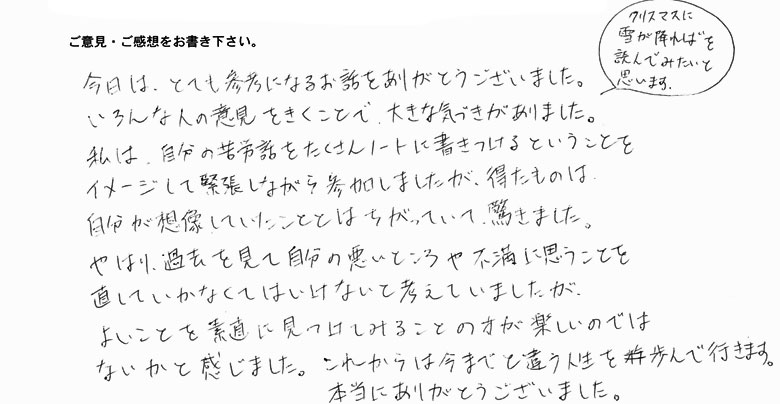 ご意見・ご感想をお書き下さい。
クリスマスに
雪が降ればを
読んでみたいと
思います。
今日は、とても参考になるお話をありがとうございました。
いろんな人の意見をきくことで、大きな気づきがありました。
私は、自分の苦労話をたくさんノートに書きつけるということを
イメージして緊張しながら参加しましたが、得たものは
自分が想像していたこととはちがっていて、驚きました。
やはり、過去を見て自分の悪いところや不満に思うことを
直していかなくてはいけないと考えていましたが、
よいことを素直に見つけてみることの方が楽しいのでは
ないかと感じました。これからは今までと違う人生を歩んで行きます。
本当にありがとうございました。